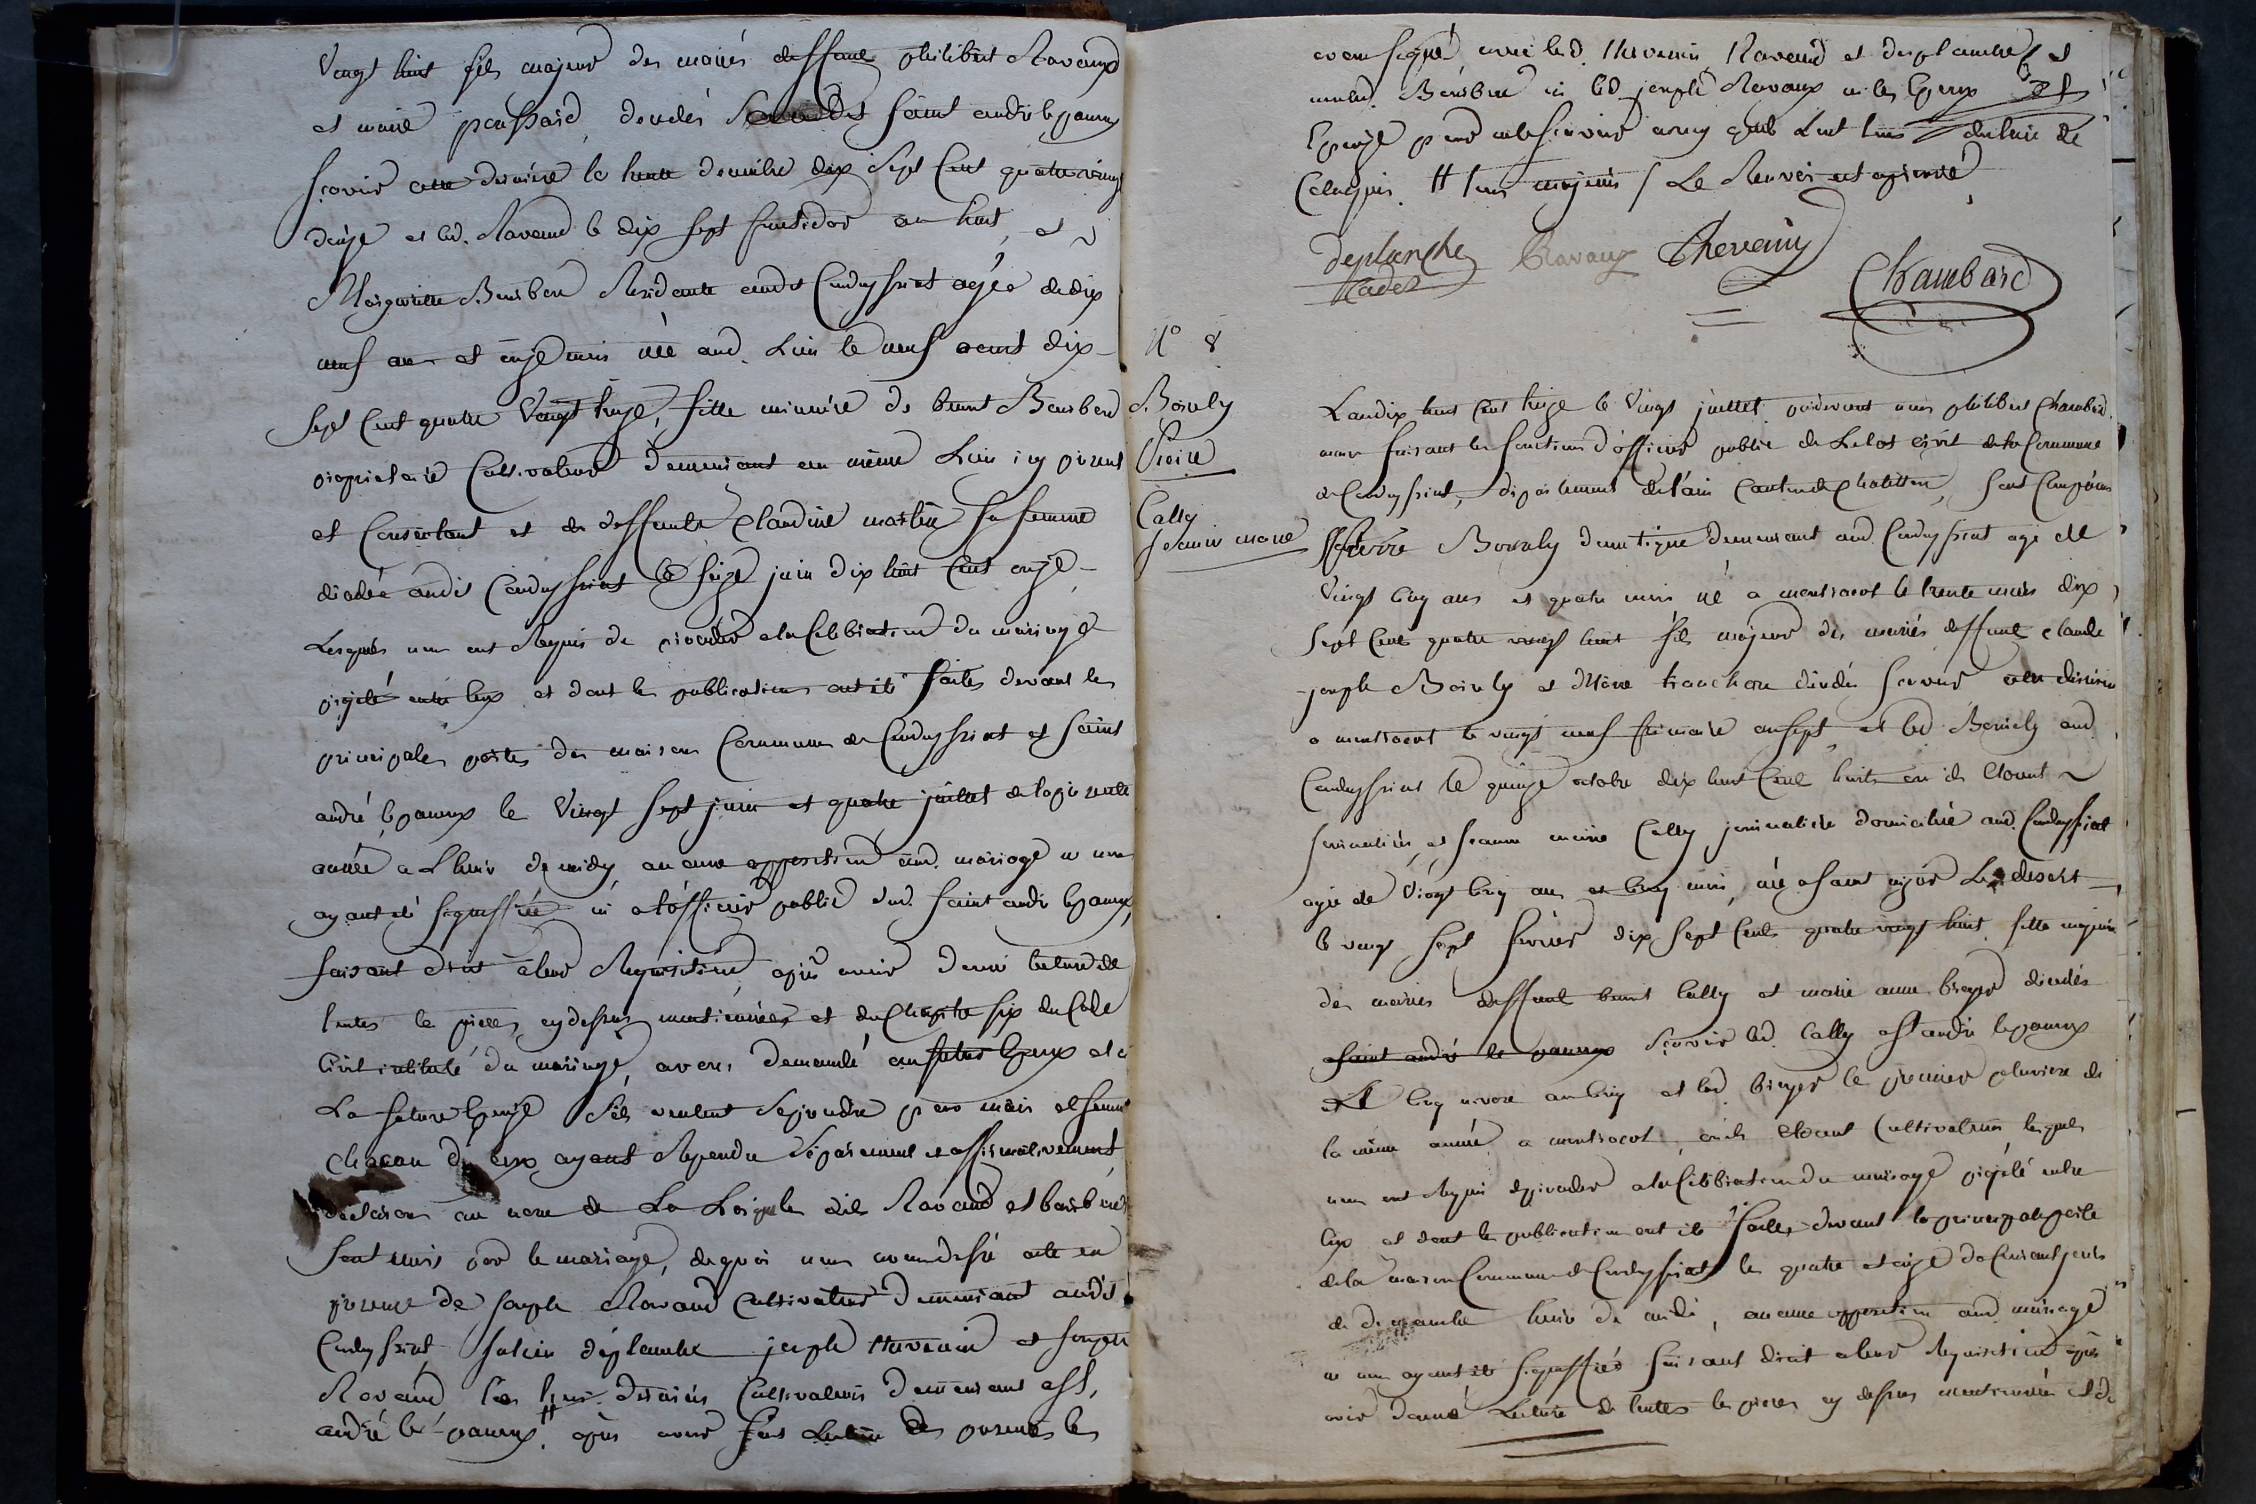 Vingt huit fils majeur des mariés deffunts philibert Ravaud
et marie poussard, dcedés saint andré le panoux
scavoir cette derniere le trente decembre dix Sept Cent quatre vingt
dieze et led. Ravaud le dix Sept fructidor an huit, et
Margueritte Barbery Residante audt Condeyssiat agée de dix
neuf ans et onze mois née aud. Lieu le neuf aoust dix-
Sept Cent quatre Vingt treize, fille mineure de benoit Barbery
propriétaire Cultivateur demeurant au même Lieu icy présent
et Consentant et de deffunte Claudine martin sa femme
dcédée audit Condeyssiat le seize juin dix huit Cent onze
Lesquels nous ont Requis de proceder a la Celebration du mariage
projetté entre eux et dont les publications ont été faites devant les
principales portes des maisons Communes de Condeyssiat et saint
andré le panoux le Vingt Sept juin et quatre juillet de la présente
année a L'heure de midy, aucune opposition aud. mariage ne nous
ayant été signiffiée ni a l'officier public dud. saint andré le panoux,
faisant droit a leur Requisition, après avoir donné lecture de
toutes les pièces cy dessus mentionnées et du Chapitre six du Code
Civil intitulé du mariage, avons demandé au futur Epoux et a
La future Epouze s'ils veulent se prendre pour mari et femme
Chacun d'eux ayant Repondu séparement et affirmativement
declarons au nom de La Loi que les dits Ravaud et barbery
sont unis par le mariage, de quoi nous avons dressé acte en
présence de Joseph Ravaud Cultivateur demeurant audit
Condeyssiat, Julien déplanche joseph thevenin et Joseph
Ravaud les trois derniers Cultivateurs demeurans a St.
andré le panoux, # après avoir fait Lecture des présentes les
avons signé avec les d. thevenin, Ravaud et deplanche, et
non led. Barbery ni led. joseph Ravaux ni les Epoux et
Epouze pour ne le scavoir ainsy qu'ils L'ont tous declaré de
Ce requis. # tous majeurs / Le Renvoi est aprouvé
deplanche
Cadet
Ravaux
Thevenin
Chambard
N° 8
Bornely
Pierre
Cally
Jeanne marie
L'an dix huit Cent treize le Vingt juillet pardevant nous philibert Chambard
maire faisant les fonctions d'officier public de L'etat civil de la Commune
de Condeyssiat, département de l'ain Canton de Chatillon, sont Comparus
Pierre Bornely domestique demeurant aud. Condeyssiat agé de
Vingt Cinq ans et quatre mois né a montracol le trente mars dix
Sept Cent quatre vingt huit fils majeur des mariés deffunts Claude
joseph Bornely et Marie tranchon décédés scavoir cette derniere
a montracol le vingt neuf frimaire an sept, et led. Bornely aud.
Condeyssiat le quinze octobre dix huit Cent huit en ils Etoient
journaliers, et Jeanne marie Cally journaliere domiciliée aud. Condeyssiat
agée de Vingt Cinq ans et Cinq mois, née a saint nizier Le desert
le vingt Sept fevrier dix Sept Cent quatre vingt huit fille majeure
des mariés deffunts benoit Cally et marie anne breyer decedés
a saint andré le panoux scavoir led. Cally a St andré le panoux
le Cinq nivose an Cinq et lad. breyer le premier pluviose de
la même année a montracol, ou ils Etoient Cultivateurs lesquels
nous ont Requis de proceder a la Celebration du mariage projetté entre
Eux et dont les publications ont été faites devant la principale porte
de la maison Commune de Condeyssiat les quatre et onze du Courant jours
de dimanche heure de midi, aucune opposition aud. mariage
ne nous ayant été signiffiée faisant droit a leur Requisition après
avoir donné Lecture de toutes les pièces cy dessus mentionnées et du